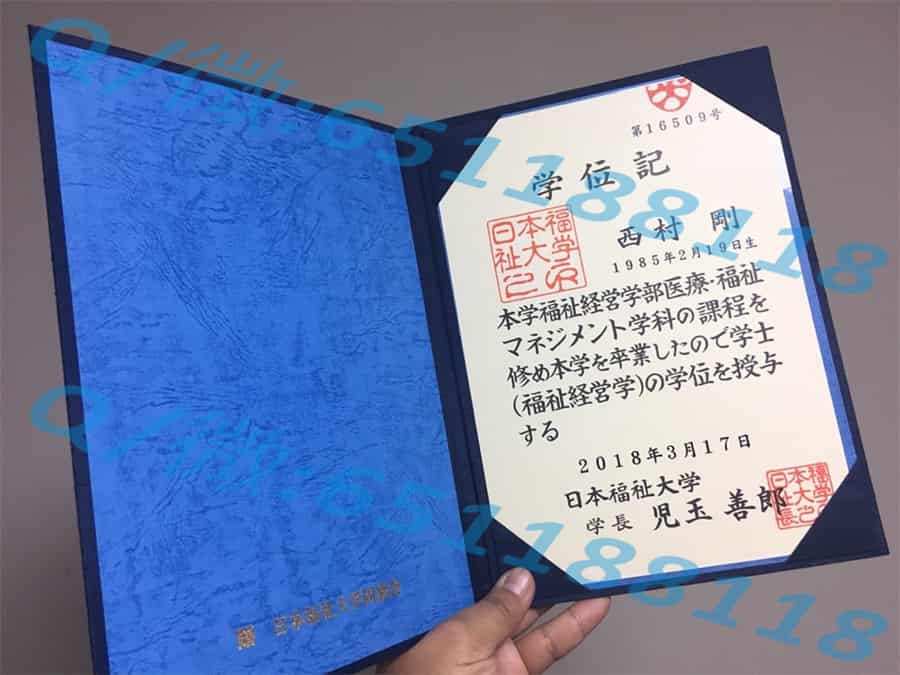 Q/微:651188118
第16509号
学位記
日本福祉大学之印
西村 剛
1985年2月19日生
本学福祉経営学部医療・福祉
マネジメント学科の課程を
修め本学を卒業したので学士
(福祉経営学)の学位を授与
する
2018年3月17日
日本福祉大学
学長 児玉 善郎
Q/微:651188118